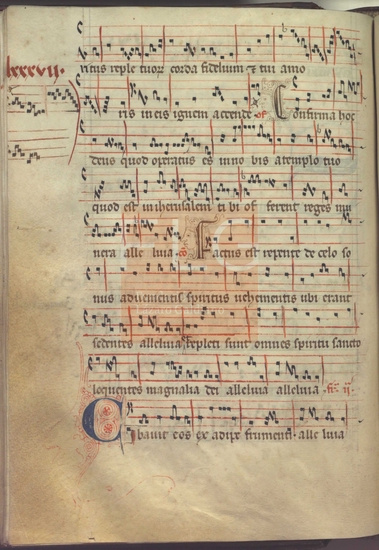 lxxxvij.
ritus reple tuorum corda fidelium et tui amo
ris in eis ignem accende of Confirma hoc
deus quod operatus es in no bis a templo tuo
quod est in iherusalem ti bi of ferent reges mu
nera alle luia. co Factus est repente de celo so
nus advenientis spiritus vehementis ubi erant
sedentes alleluia repleti sunt omnes spiritu sancto
loquentes magnalia dei alleluia alleluia.
Cibavit eos ex adipe frumenti. alle luia